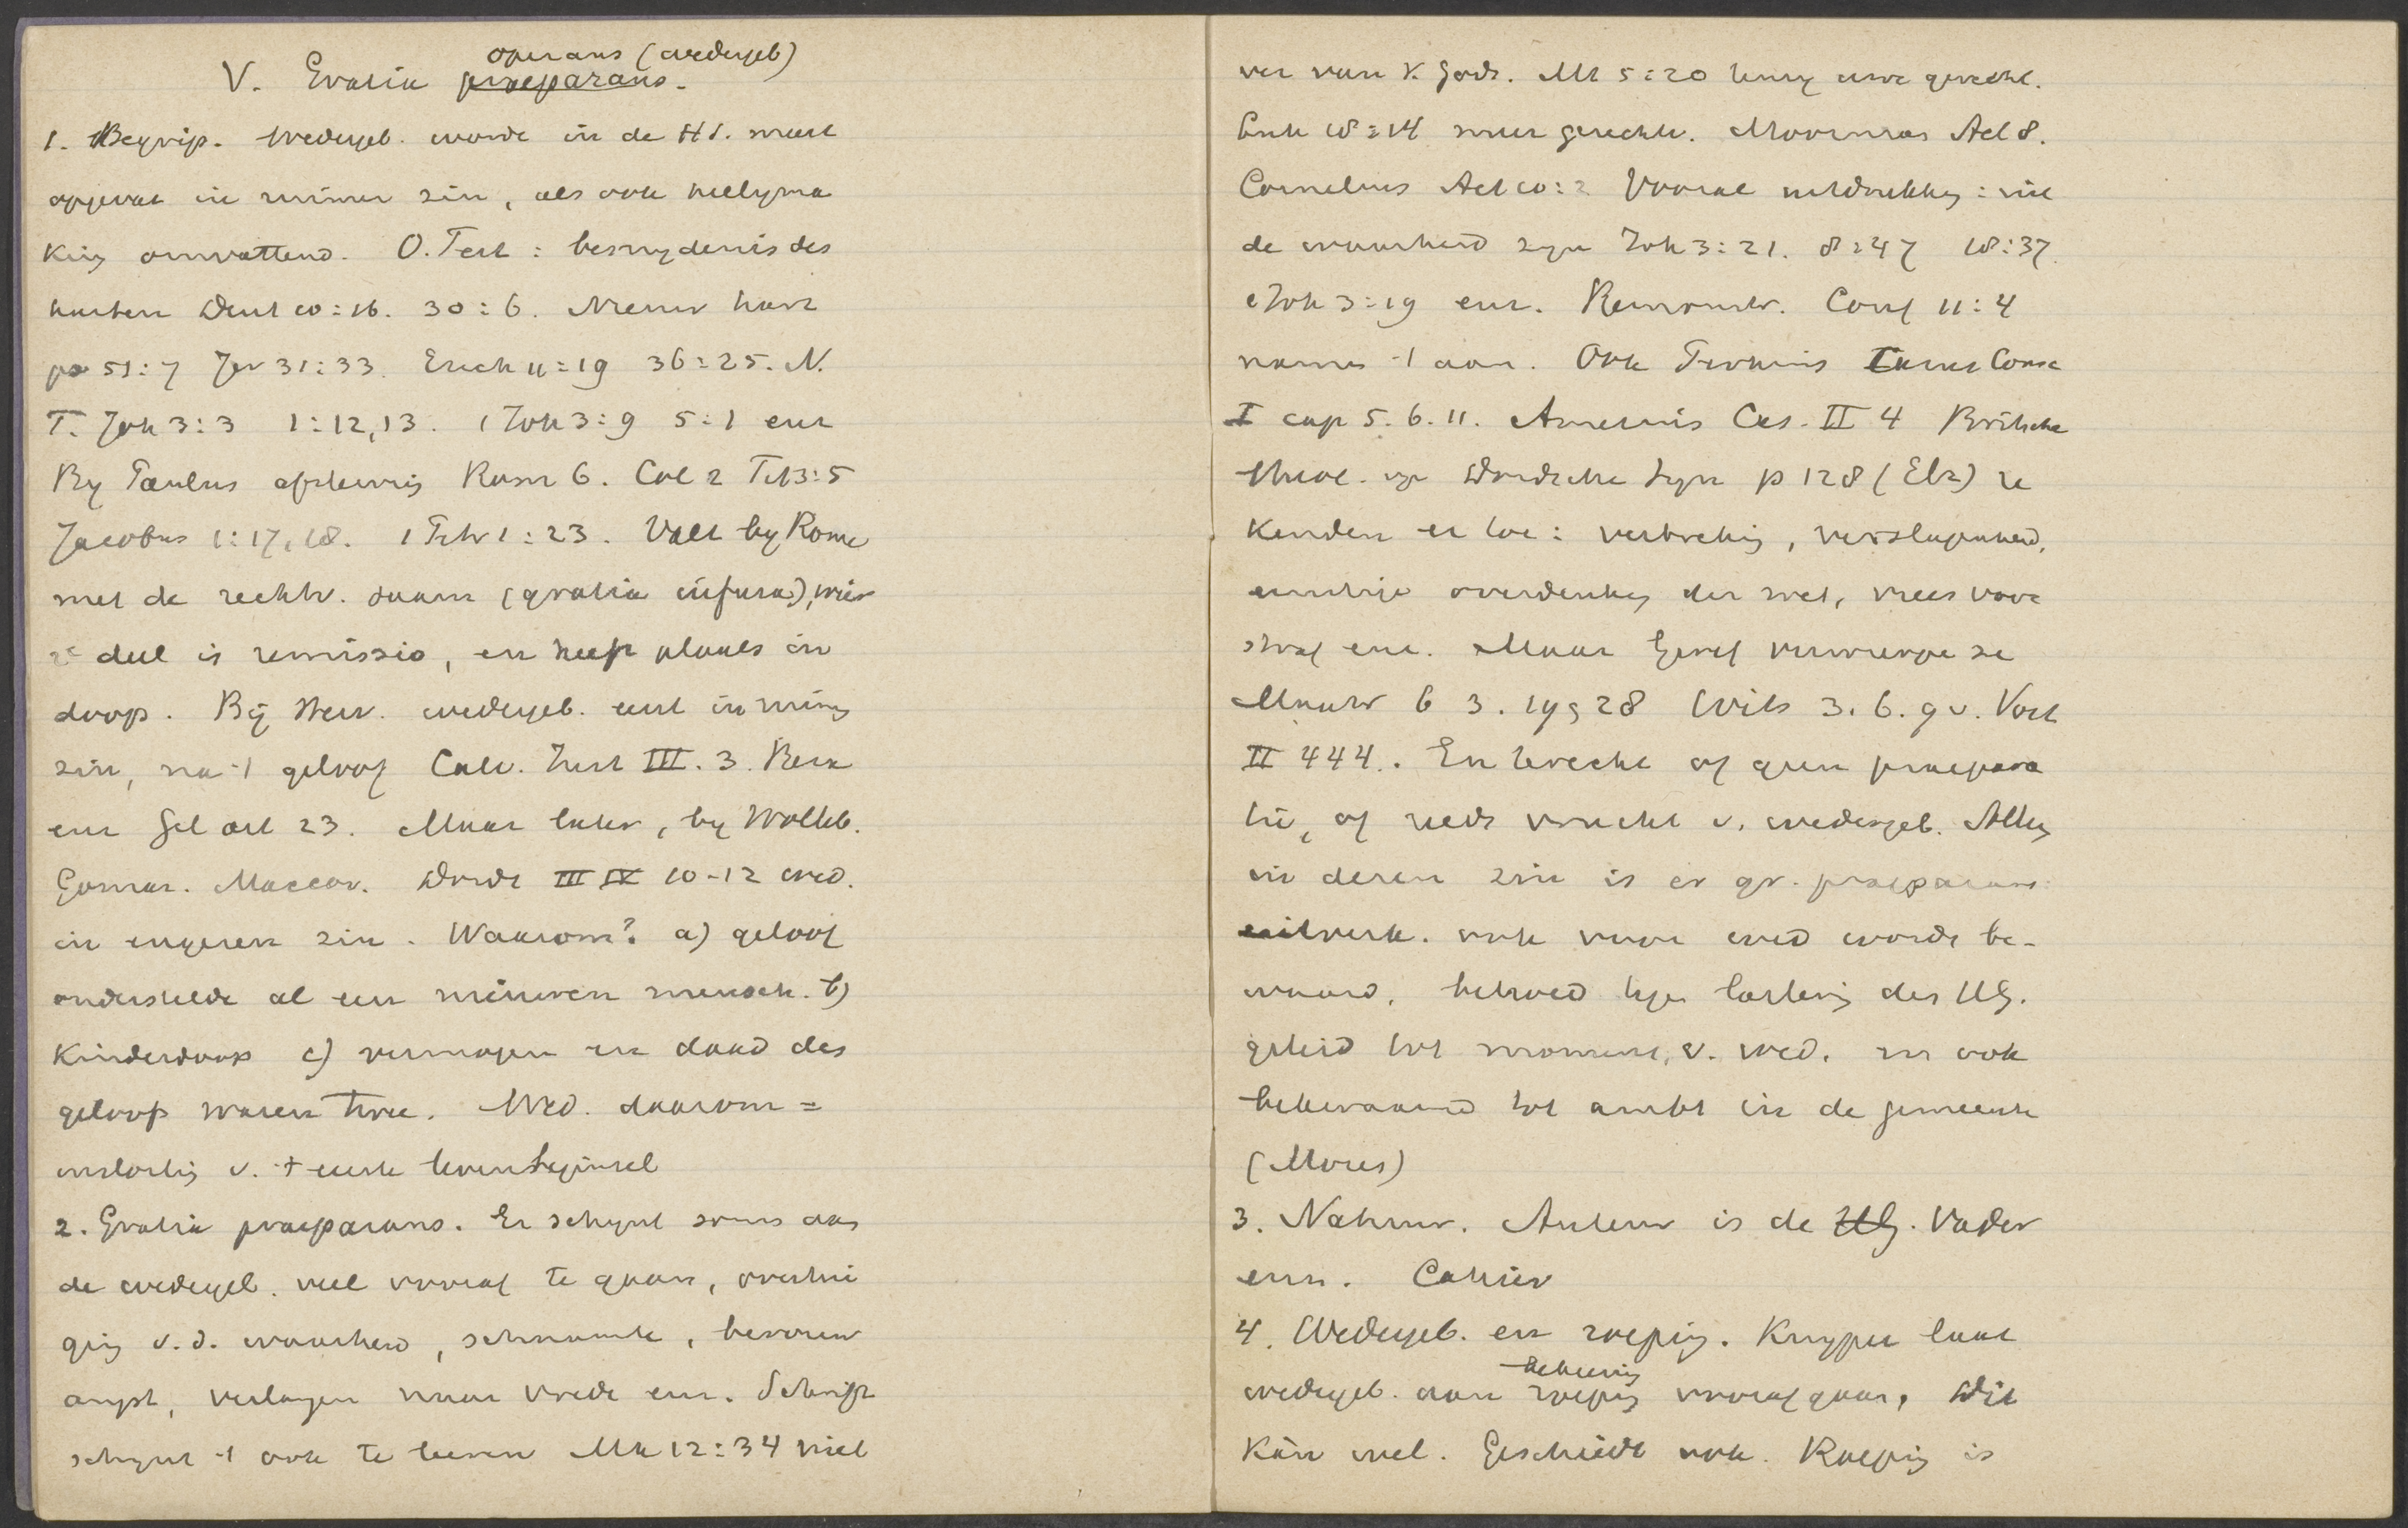 operans (wedergeb)
V. Gratia praeparans.
1. Begrip. Wedergeb. wordt in de H S. meest
opgevat in ruimer zin, als ook heiligma
king omvattend. O. Test: besnydenis des
harten Deut 10:16. 30:6. Nieuw hart
ps 51:7 Jer 31:33. Ezech 11:19 36:25. N.
T. Joh 3:3 1:12,13. 1 Joh 3:9 5:1 enz
By Paulus Rom 6. Col 2 Tit 3:5
Jacobus 1:17,18. 1 Petr 1:23. Valt by Rome
met de rechtv. saam (gratia infusa), wier
2e deel is remissio, en heeft plaats in
doop. By Herv. wedergeb. eerst in ruimeren
zin, na 't geloof Calv. Inst III. 3. Beza
enz Gel art 23. Maar later, by Wolleb.
Gomar. Maccov. Dordt III IV 10-12 wed.
in engeren zin. Waarom? a) geloof
onderstelde al een nieuwen mensch. b)
Kinderdoop c) vermogen en daad des
geloofs waren twee. Wed. daarom =
instorting v. 't eerste levensbeginsel
2. Gratia praeparans. Er schynt soms aan
de wedergeb. veel vooraf te gaan, overtui
ging v.d. waarheid, schaamte, berouw
angst, verlangen naar vrede enz. Schrift
schynt 't ook te leeren Mk 12:34 niet
ver van K. Gods. Mt 5:20 tenzij uwe gerecht.
Luk 18:14 meer gerechtv. Moorman Act 8.
Cornelius Act 10:2 Vooral uitdrukking: uit
de waarheid zyn Joh 3:21. 8:47 18:37.
1 Joh 3:19 enz. Remonstr. Conf 11:4
namen 't aan. Ook Perkins Casus Consc
I cap 5. 6. 11. Amesius Cas. II 4 Britsche
theol. op Dordsche Syn p 128 (Elz) re
kenden er toe: verbreking, verslagenheid,
ernstige overdenking der wet, vrees voor
straf enz. Maar Geref verwierpen ze
Mastr 6 3. 19§28 Wits 3. 6. 9 v. Voet
II 444. En terecht of geen praepara
tie, of reeds vrucht v. wedergeb. Alleen
in dezen zin is er gr. praeparans:
uitverk. ook voor wed wordt be-
waard, behoed tegen lastering des HG.
geleid tot moment v. wed. en ook
bekwaamd tot ambt in de gemeente
(Mozes)
3. Natuur. Auteur is de HG. Vader
enz. Cahier
4. Wedergeb. en roeping. Kuyper laat
bekeering
wedergeb. aan roeping voorafgaan, Dit
Kan wel. Geschiedt ook. Roeping is